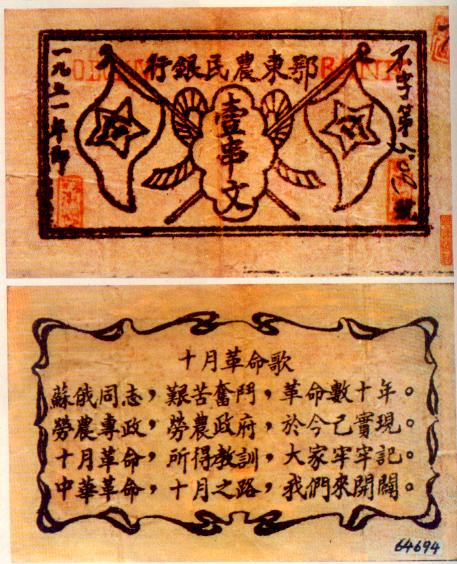 鄂東農民銀行
一九三一年印
壹串文
不字第六〇號
十月革命歌
蘇俄同志，艱苦奮鬥，革命數十年。
勞農專政，勞農政府，於今已實現。
十月革命，所得教訓，大家牢牢記。
中華革命，十月之路，我們來開闢。
64694